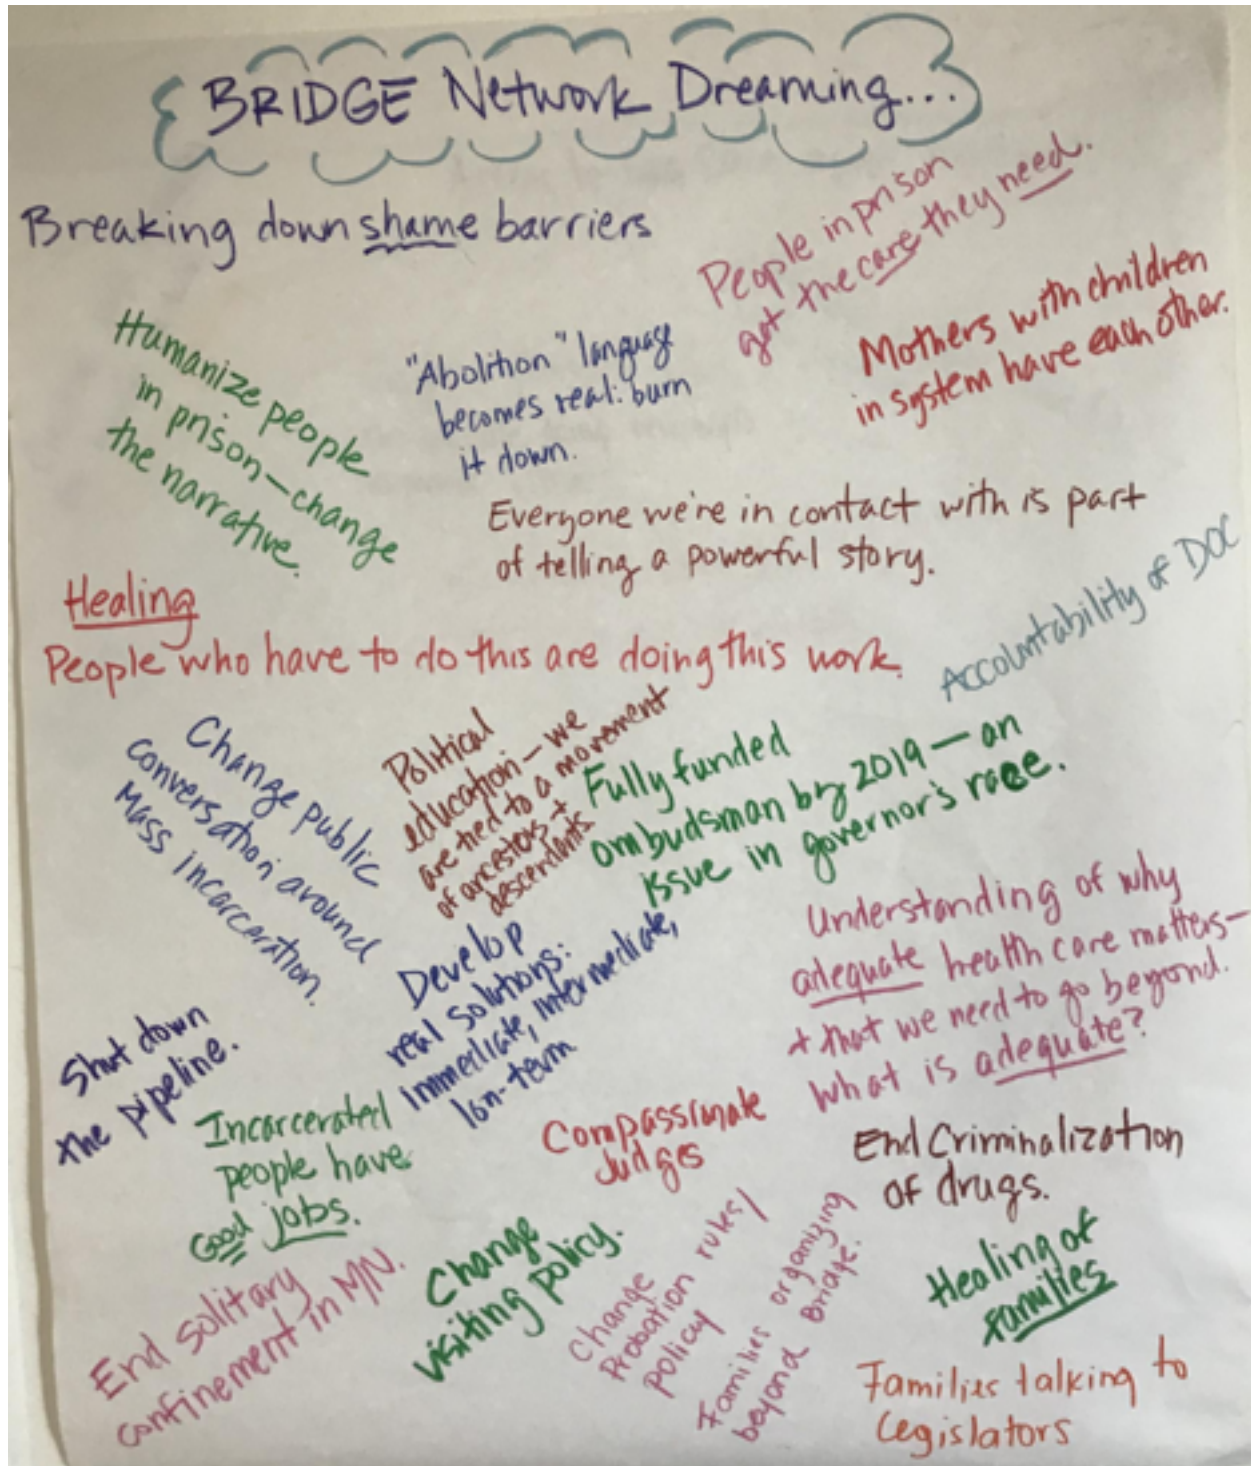 BRIDGE Network Dreaming...
Breaking down shame barriers
People in prison
get the care they need.
Mothers with children
in system have each other.
Humanize people
in prison—change
the narrative.
"Abolition" language
becomes real: burn
it down.
Everyone we're in contact with is part
of telling a powerful story.
Healing
People who have to do this are doing this work.
Accountability of DOC
Change public
conversation around
Mass incarceration.
Political
education—we
are tied to a movement
of ancestors +
descendants
Fully funded
ombudsman by 2019—an
issue in governor's race.
Understanding of why
adequate health care matters—
+ that we need to go beyond.
What is adequate?
Develop
real solutions:
immediate, intermediate,
lon-term
Shut down
the pipeline.
Incarcerated
people have
Good jobs.
Compassionate
Judges
End Criminalization
of drugs.
End solitary
confinement in MN.
Change
visiting policy.
Change
Probation rules/
policy
Families organizing
beyond Bridge.
Healing of
families
Families talking to
Legislators